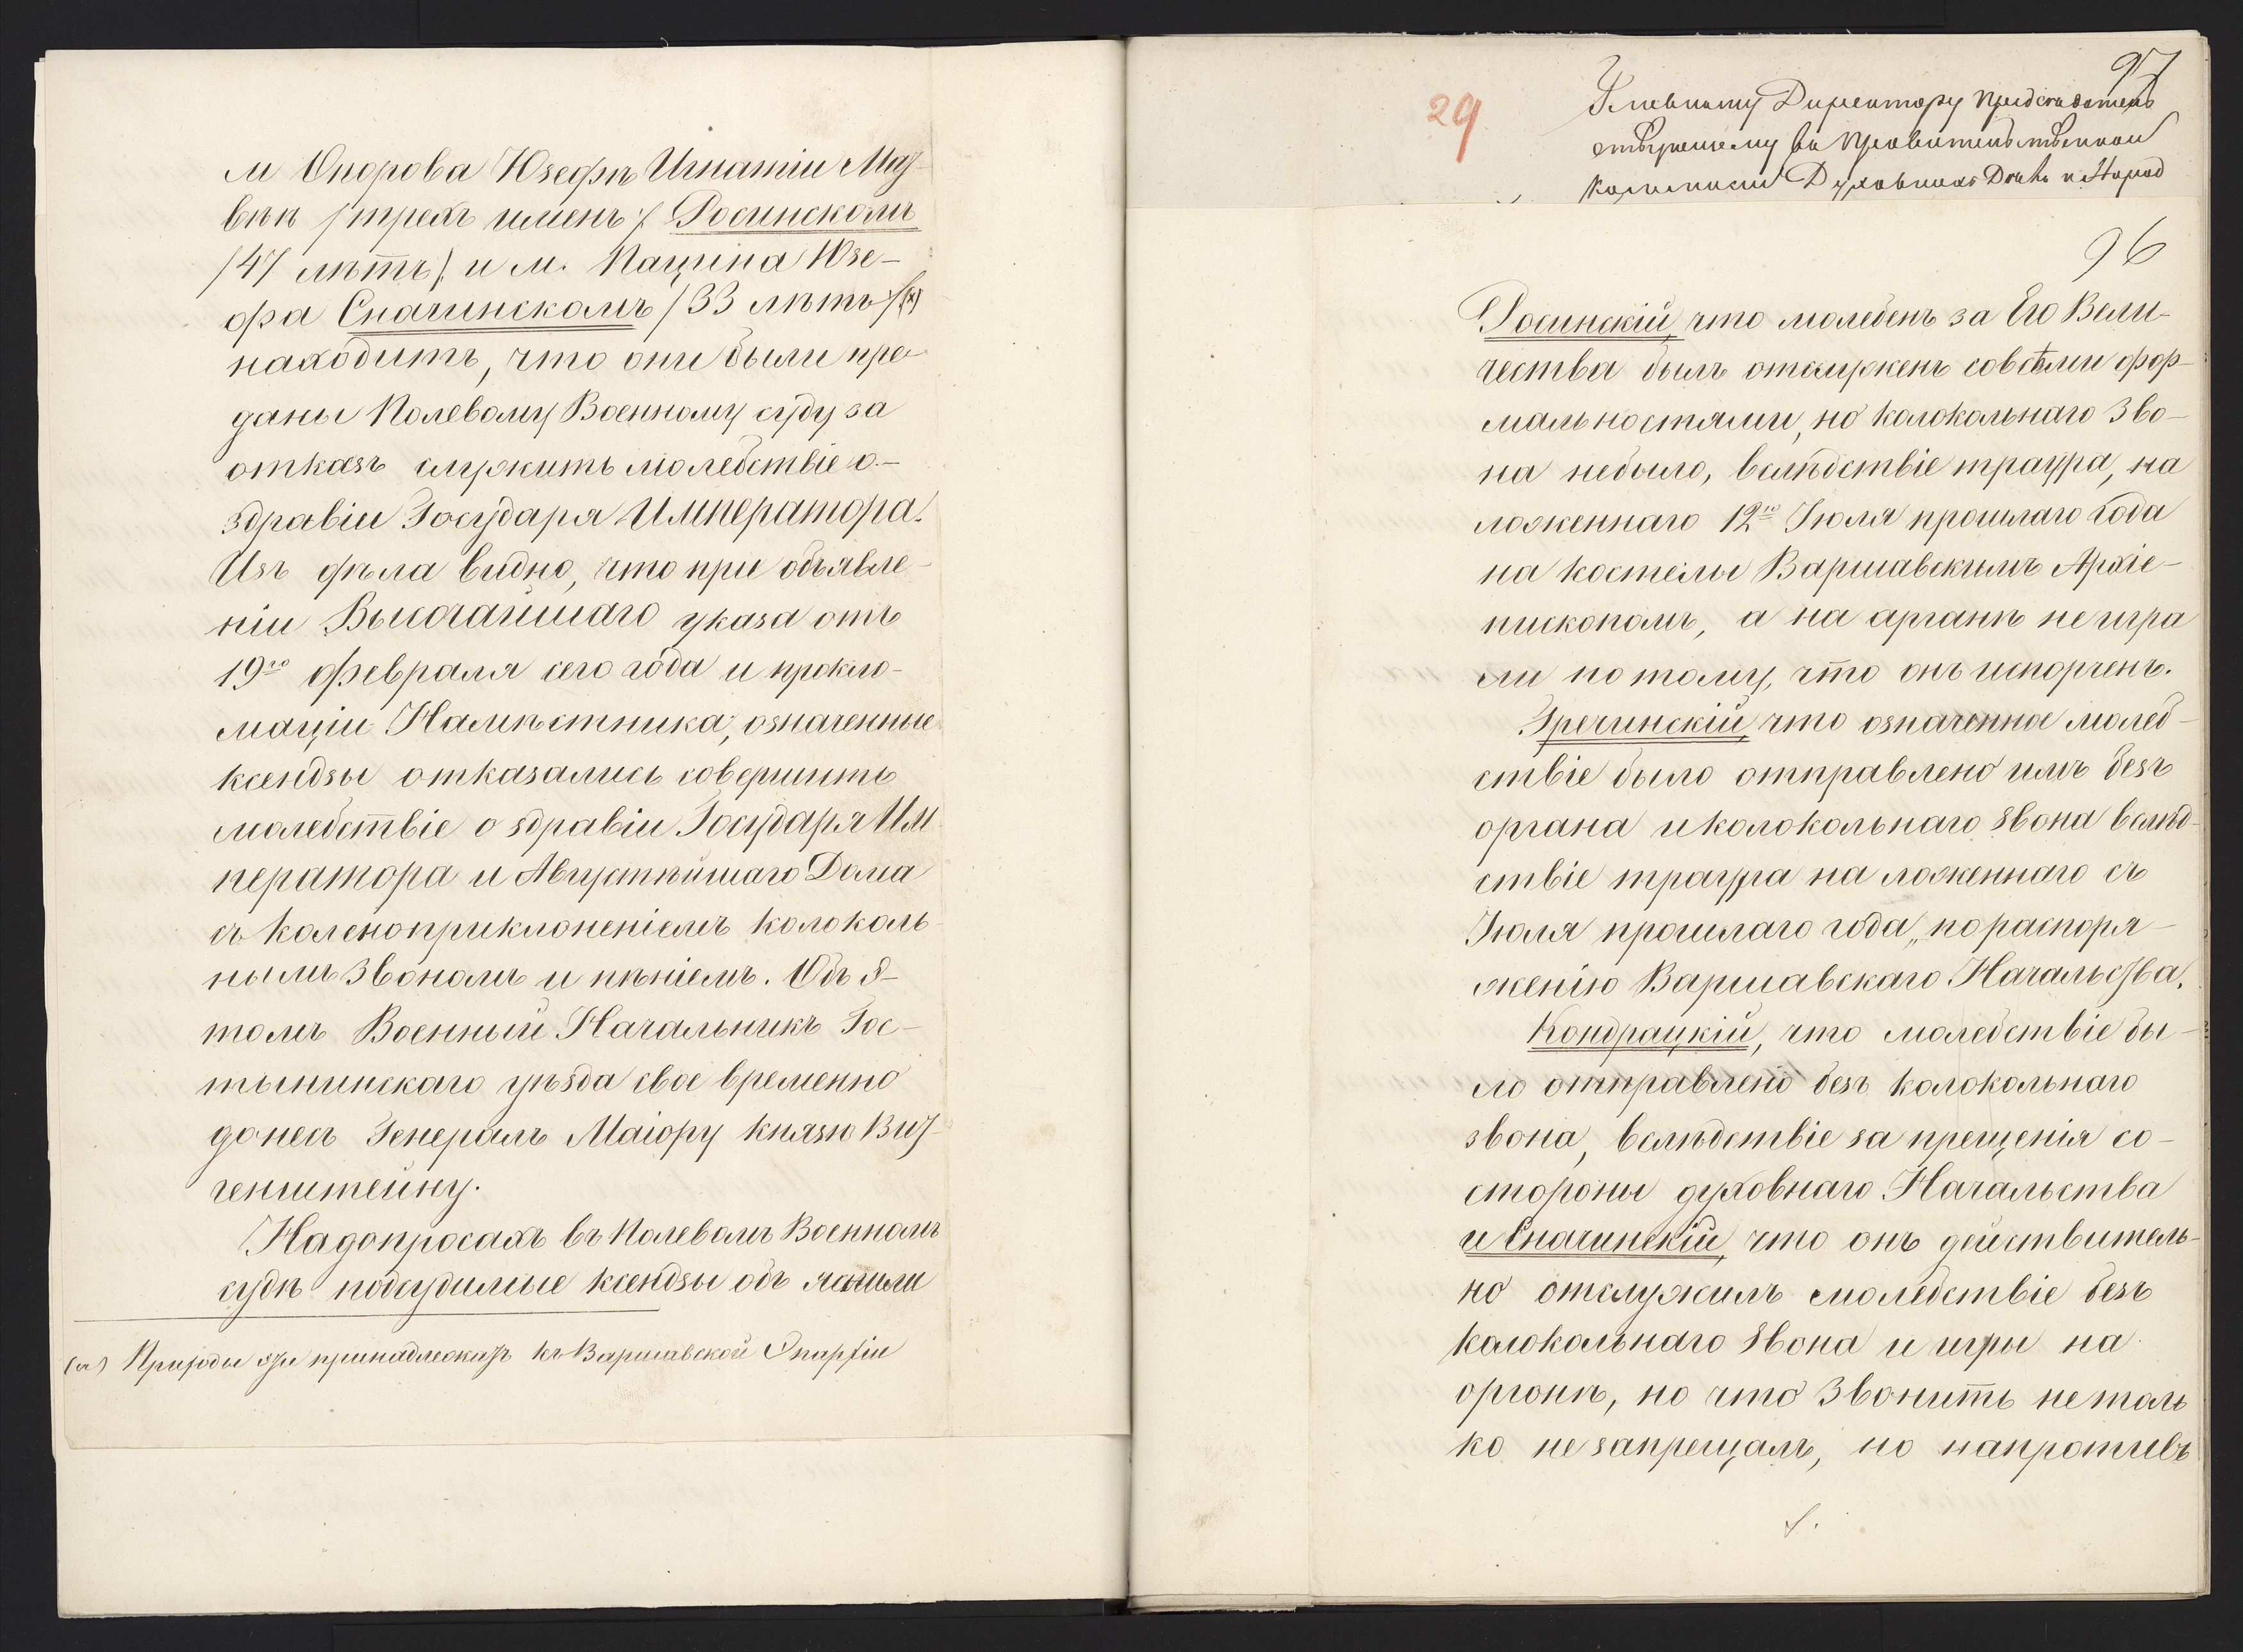 м Опорова Юзефъ Игнатіи Мат
вѣѣ /трехъ именъ/ Росинскомъ
/47 лѣтъ/ и м. Пацина Юзе-
фа Сначинскомъ /33 лѣтъ/(*)
находитъ, что они были пре-
даны Полевому Военному суду за
отказъ служить молебствіе о-
здравіи Государя Императора.
Изъ дѣла видно, что при объявле-
ніи Высочайшаго указа отъ
19го февраля сего года и прокло-
маціи Намѣстника, означенные
ксендзы отказались совершить
молебствіе о здравіи Государя Им
ператора и Августѣйшаго Дома
съ коленоприклоненіемъ колоколь-
нымъ звономъ и пѣніемъ. Объ э-
томъ Военный Начальникъ Гос-
тынинскаго уѣзда свое временно
донесъ Генералъ Маіору князю Вит-
генштейну.
На допросахъ въ Полевомъ Военномъ
судѣ подсудимые ксендзы объ яснили
(*) Приходы эти принадлежатъ къ Варшавской Епархіи
97
29
Главному Директору Предсѣдатель
ствующему въ Правительственной
Коммисіи Духовныхъ Дѣлъ и Народ
96
Росинскій, что молебенъ за Его Вели-
чества былъ отслуженъ совсѣми фор-
мальностями, но колокольнаго зво-
на небыло, вслѣдствіе траура, на
ложеннаго 12го Іюля прошлаго года
на костелы Варшавскимъ Архіе-
пископомъ, а на арганѣ не игра
ли потому, что онъ испорченъ.
Гречинскій, что означенное молеб-
ствіе было отправлено имъ безъ
органа и колокольнаго звона вслѣд-
ствіе траура на ложеннаго съ
Іюля прошлаго года, по распоря-
женію Варшавскаго Начальства.
Кондрацкій, что молебствіе бы-
ло отправлено безъ колокольнаго
звона, вслѣдствіе за прещенія со-
стороны духовнаго Начальства
и Сначинскій, что онъ дѣйствитель-
но отслужилъ молебствіе безъ
колокольнаго звона и игры на
оргонѣ, но что звонить не толь
ко не запрещалъ, но напротивъ